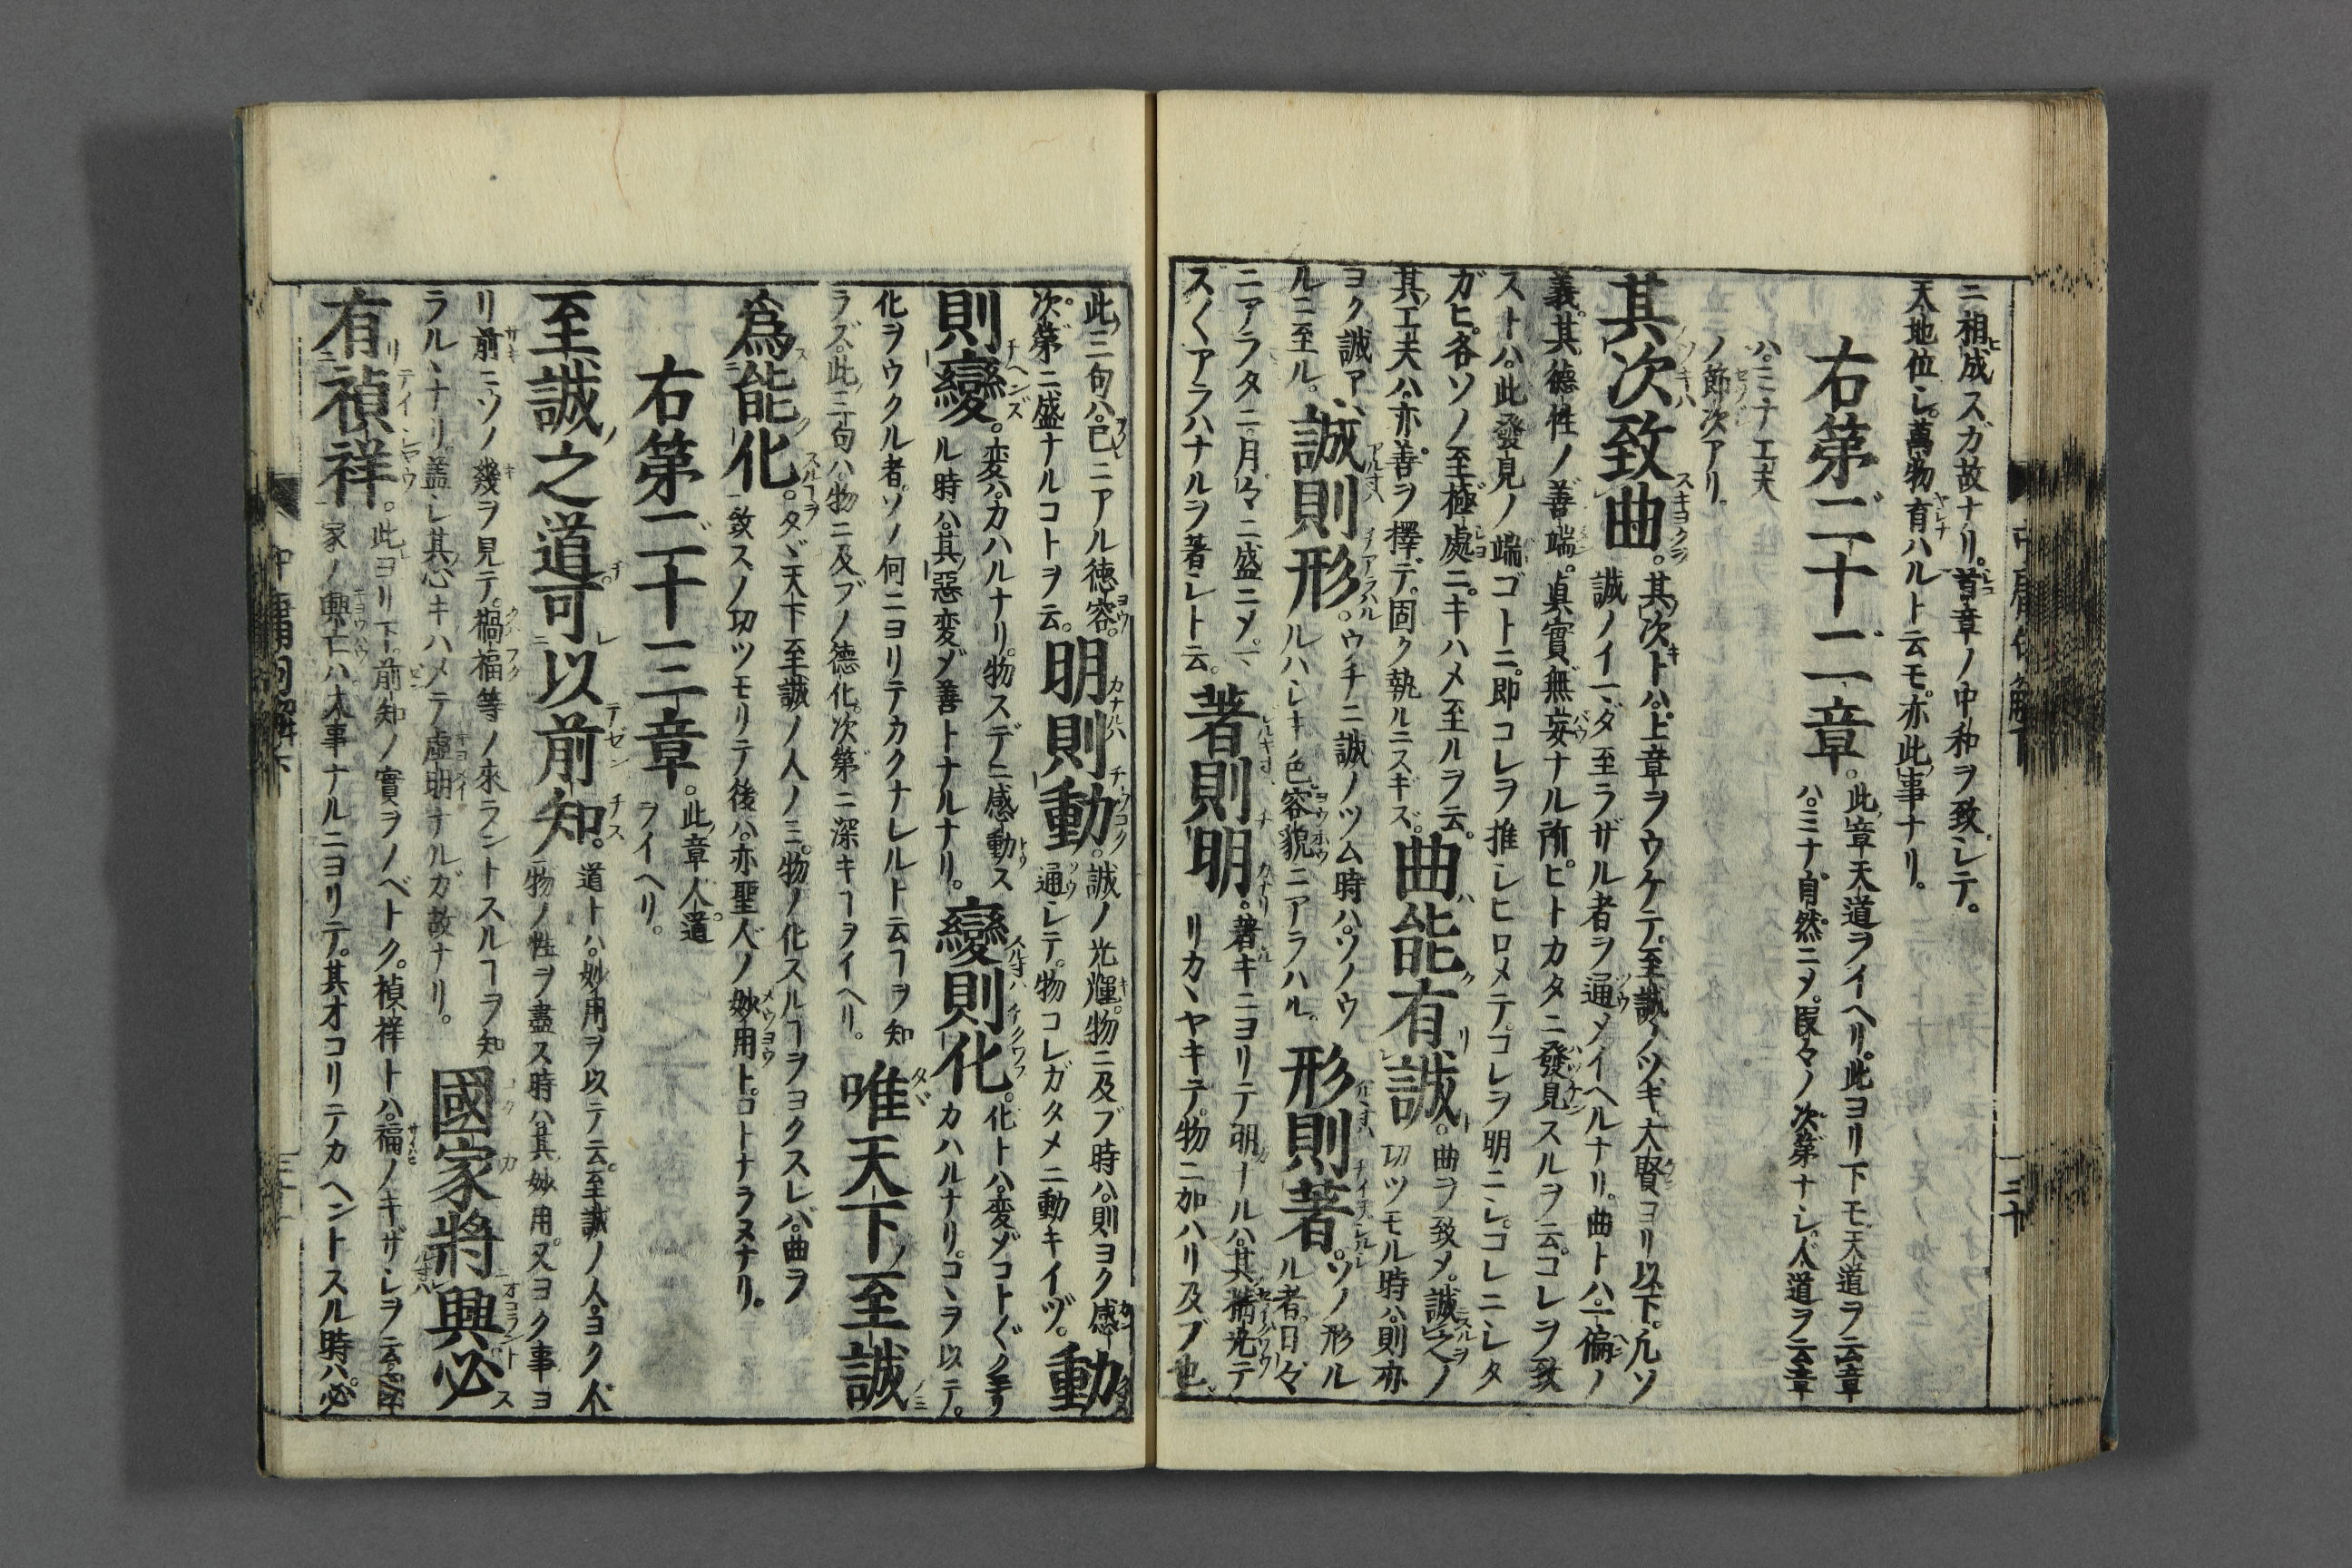 ニ相成スガ故ナリ。首章ノ中和ヲ致シテ。
天地位シ。萬物有ハルト云モ亦此事ナリ。
右第二十二章。此章天道ヲイヘリ。此ヨリ下モ天道ヲ云章
ハ。ミナ自然ニメ。段々ノ次第ナシ。人道ヲ云章
ハ。ミナ工夫
ノ節次アリ。
其次致曲。其次トハ。上章ヲウケテ。至誠ノツギ大賢ヨリ以下。凡ソ
誠ノイマダ至ラザル者ヲ通メイヘルナリ。曲トハ。一偏ノ
義。其德性ノ善端。眞實無妄ナル所。ヒトカタニ發見スルヲ云。コレヲ致
ストハ。此發見ノ端ゴトニ。即コレヲ推シヒロメテ。コレヲ明ニシ。コレニシタ
ガヒ。各ソノ至極處ニ。キハメ至ルヲ云。曲能有誠。曲ヲ致メ。誠之ノ
其工夫ハ。亦善ヲ擇デ。固ク執ルニスギズ。切ツモル時ハ。則亦
ヨク誠アルニ至ル。誠則形。ウチニ誠ノツム時ハ。ソノウ
ルハシキ色容貌ニアラハル。形則著。ソノ形ル
ル者。日々
ニアラタニ。月々ニ盛ニメ。
スくアラハナルヲ著シト云。著則明。著キニヨリテ明ナルハ。其耤光テ
リカヽヤキテ。物ニ加ハリ及ブ也。
此三句ハ。己ニアル徳容。
次第ニ盛ナルコトヲ云。明則動。誠ノ光輝。物ニ及ブ時ハ。則ヨク感
通シテ。物コレガタメニ動キイヅ。動
則變。変ハ。カハルナリ。物スデニ感動ス
ル時ハ。其惡変メ善トナルナリ。變則化。化トハ。変ゾコトぐク
カハルナリ。コヽヲ以テ。
化ヲウクル者。ソノ何ニヨリテカクナレルト云ヿヲ知
ラズ。此三句ハ。物ニ及ブノ德化。次第ニ深キヿヲイヘリ。唯天下至誠
爲能化。タヾ天下至誠ノ人ノミ。物ノ化スルヿヲヨクスレバ。曲ヲ
致スノ切ツモリテ後ハ。亦聖人ノ妙用ト。コトナラヌナリ。
右第二十三章。此章人道
ヲイヘリ。
至誠之道可以前知。道トハ。妙用ヲ以テ云。至誠ノ人。ヨク人
物ノ性ヲ盡ス時ハ。其妙用。又ヨク事ヨ
リ前ニソノ幾ヲ見テ。禍福等ノ來ラントスルヿヲ知
ラルヽナリ。盖シ其心キハメテ虛明ナルガ故ナリ。國家將興必
有禎祥。此ヨリ下。前知ノ實ヲノベトク。禎祥トハ。福ノキザシヲ云。
家ノ興亡ハ大事ナルニヨリテ。其オコリテカヘントスル時ハ。必
中庸句解下
三十